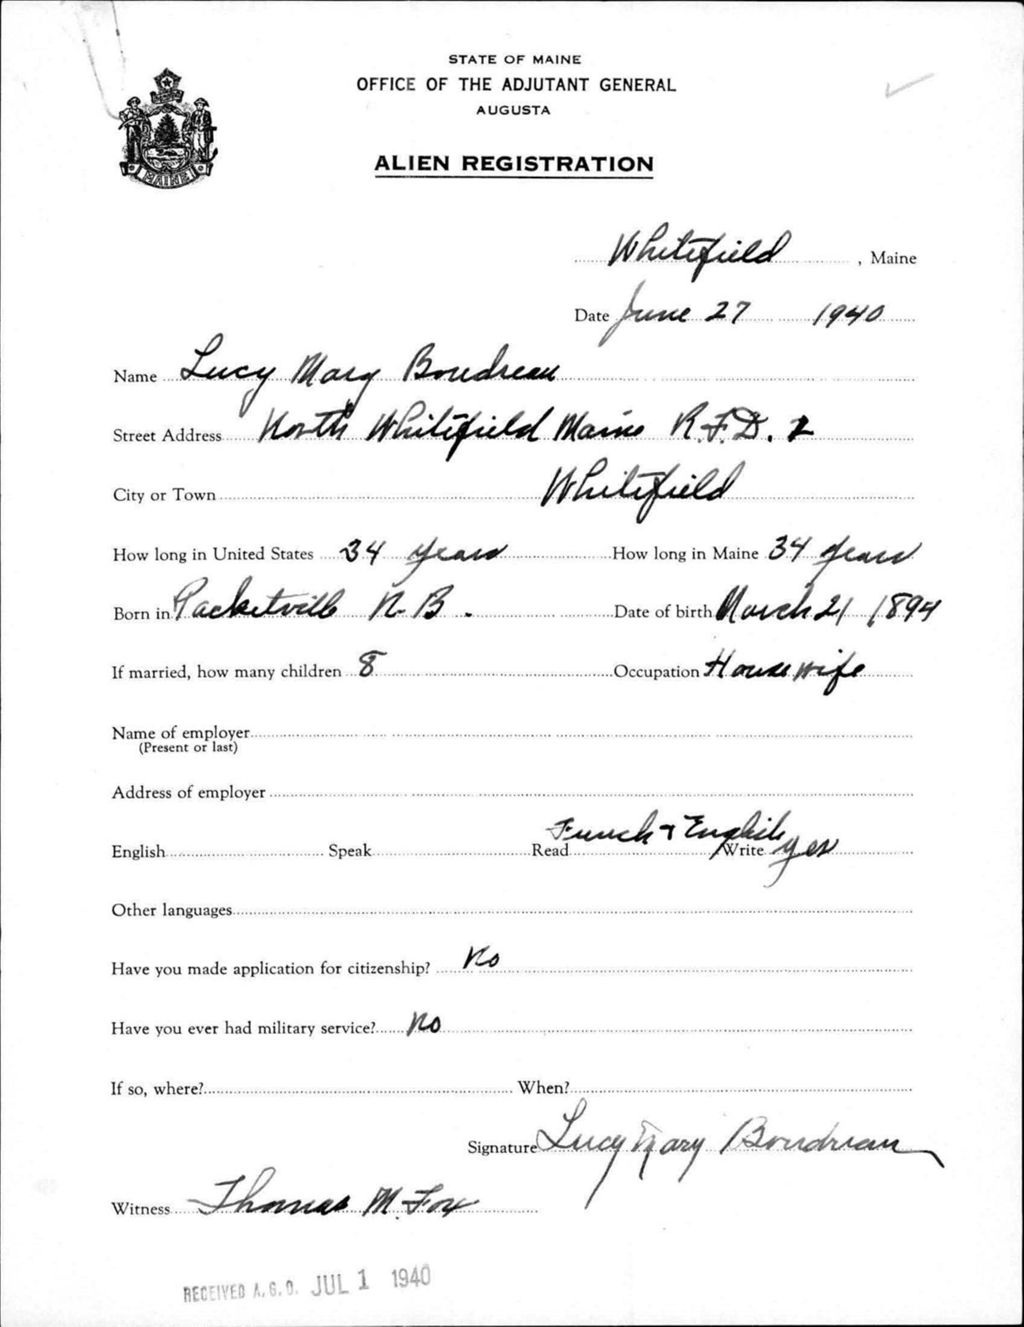 STATE OF MAINE
OFFICE OF THE ADJUTANT GENERAL
AUGUSTA
ALIEN REGISTRATION
MAINE
Whitefield, Maine
Date June 27 1940
Name Lucy Mary Boudreau
Street Address North Whitefield Maine R.F.D. 2
City or Town Whitefield
How long in United States 34 years How long in Maine 34 years
Born in Packetville N-B. Date of birth March 21 1894
If married, how many children 8 Occupation House wife
Name of employer
(Present or last)
Address of employer
English Speak Read French & English Write yes
Other languages
Have you made application for citizenship? No
Have you ever had military service? No
If so, where? When?
Signature Lucy Mary Boudreau
Witness Thomas M. Fox
RECEIVED A.G.O. JUL 1 1940